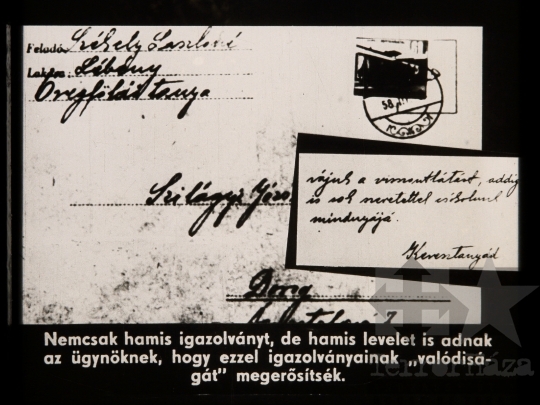 Feladó: Székely Lászlóné
Lakása: Lébény
Öregföldi tanya
58
Szilágyi
várjuk a viszontlátást, addig
is sok szeretettel csókolunk
mindnyájá
Keresztanyád
Nemcsak hamis igazolványt, de hamis levelet is adnak
az ügynöknek, hogy ezzel igazolványainak „valódisá-
gát” megerősítsék.
terrorháza